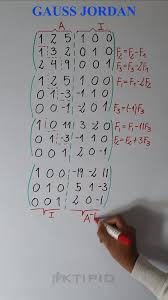 GAUSS JORDAN
A I
1 2 5 1 0 0
1 3 2 0 1 0 F₂=F₂-F₁
2 4 9 0 0 1 F₃=F₃-2F₁
1 2 5 1 0 0 F₁=F₁-2F₂
0 1 -3 -1 1 0
0 0 -1 -2 0 1 F₃=(-1)F₃
1 0 11 3 -2 0 F₁=F₁-11F₃
0 1 -3 -1 1 0 F₂=F₂+3F₃
0 0 1 2 0 -1
1 0 0 -19 -2 11
0 1 0 5 1 -3
0 0 1 2 0 -1
I A⁻